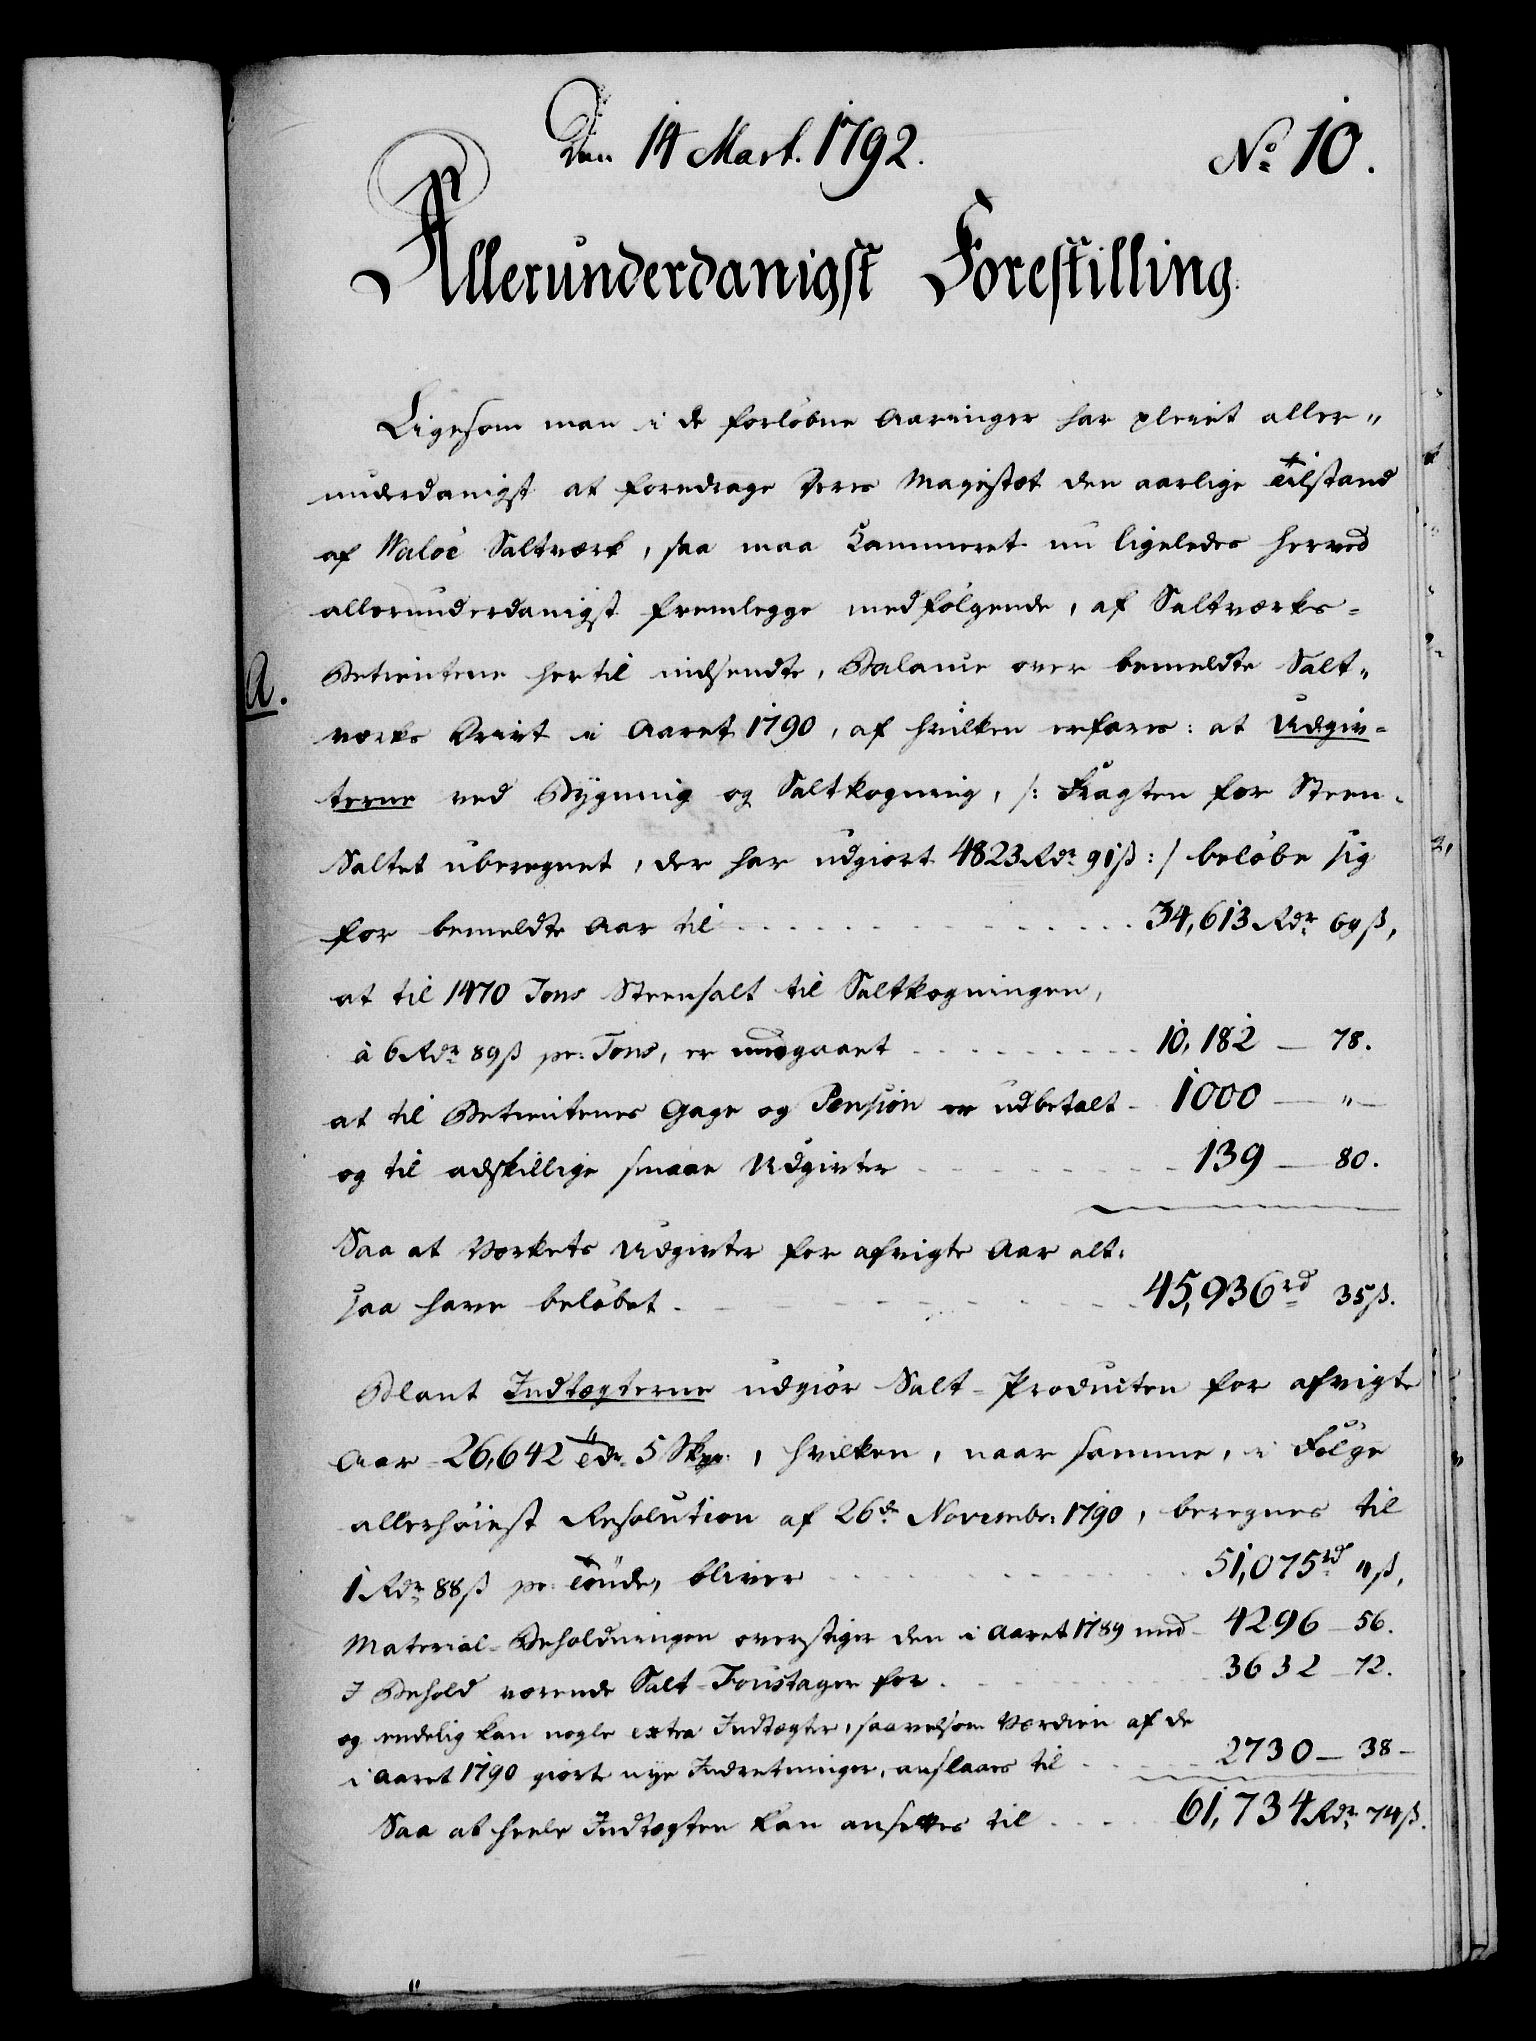 Den 14 Mart. 1792.
No 10.
Allerunderdanigst Forestilling.
Ligesom man i de forløbne Aaringer har pleiet aller„
underdanigst at foredrage Deres Majestæt den aarlige Tilstand
af Waløe Saltværk, saa maa Cammeret nu ligeledes herved
allerunderdanigst fremlegge medfølgende, af Saltværks-
A.
Betientene hertil indsendte, Balance over bemeldte Salt„
værks Drivt i Aaret 1790, af hvilken erfares: at Udgiv-
terne ved Bygning og Saltkogning, /: Fragten for Steen-
Saltet uberegnet, der har udgiort 4823 Rdr 91 ß :/ beløbe sig
for bemeldte Aar til . . . . . . . 34,613 Rdr 69 ß,
at til 1470 Tons Steensalt til Saltkogningen,
à 6 Rdr 89 ß pr: Tons, er medgaaet . . . . 10,182 — 78.
at til Betientenes Gage og Pension er udbetalt - 1000 — „ —
og til adskillige smaae Udgivter - - - - 139 — 80.
Saa at Værkets Udgivter for afvigte Aar alt-
saa have beløbet - - - - - - 45,936 rd 35 ß.
Blant Indtægterne udgiør Salt-Producten for afvigte
Aar - 26,642 Tdr 5 Skpr, hvilken, naar samme, i Følge
allerhøiest Resolution af 26de Novembr: 1790, beregnes til
1 Rdr 88 ß pr: Tønde, bliver . . . . . . 51,075 rd „ ß,
Material-Beholdningen overstiger den i Aaret 1789 med - 4296 — 56.
I Behold værende Salt-Foustager for . . . . . 3632 — 72.
og endelig kan nogle extra Indtægter, saavelsom Værdien af de
i Aaret 1790 giorte nye Indretninger, anslaaes til . . . . 2730 — 38 —
Saa at heele Indtægten kan ansettes til . . . . 61,734 Rdr 74 ß.